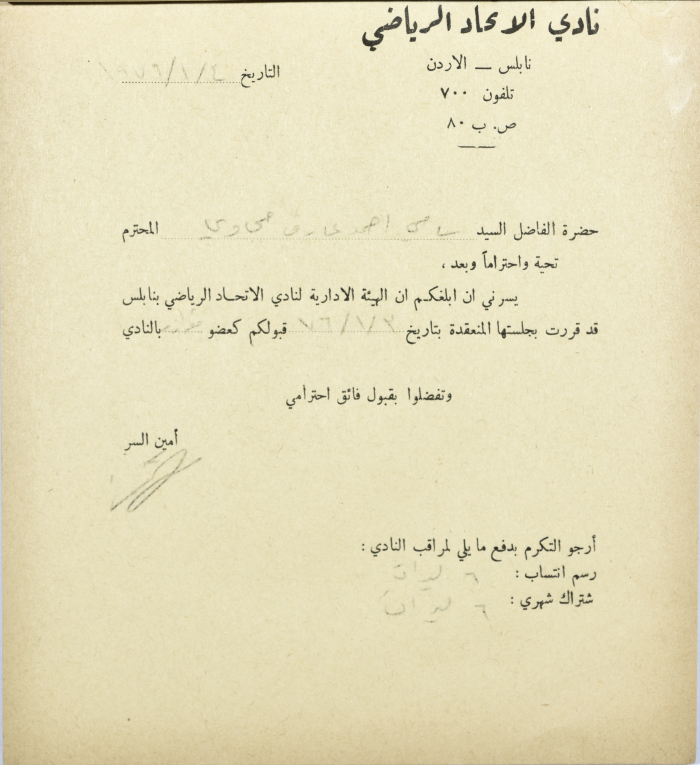 نادي الاتحاد الرياضي
نابلس — الاردن
تلفون ٧٠٠
ص. ب ٨٠
التاريخ ١٩٧٦/١/٤
حضرة الفاضل السيد سامي احمد عارف المحترم
تحية واحتراماً وبعد ،
يسرني ان ابلغكم ان الهيئة الادارية لنادي الاتحاد الرياضي بنابلس
قد قررت بجلستها المنعقدة بتاريخ ٧٦/١/٣ قبولكم كعضو بالنادي
وتفضلوا بقبول فائق احترامي
أمين السر
أرجو التكرم بدفع ما يلي لمراقب النادي :
رسم انتساب : ٦ ليرات
شتراك شهري : ٦ ليرات